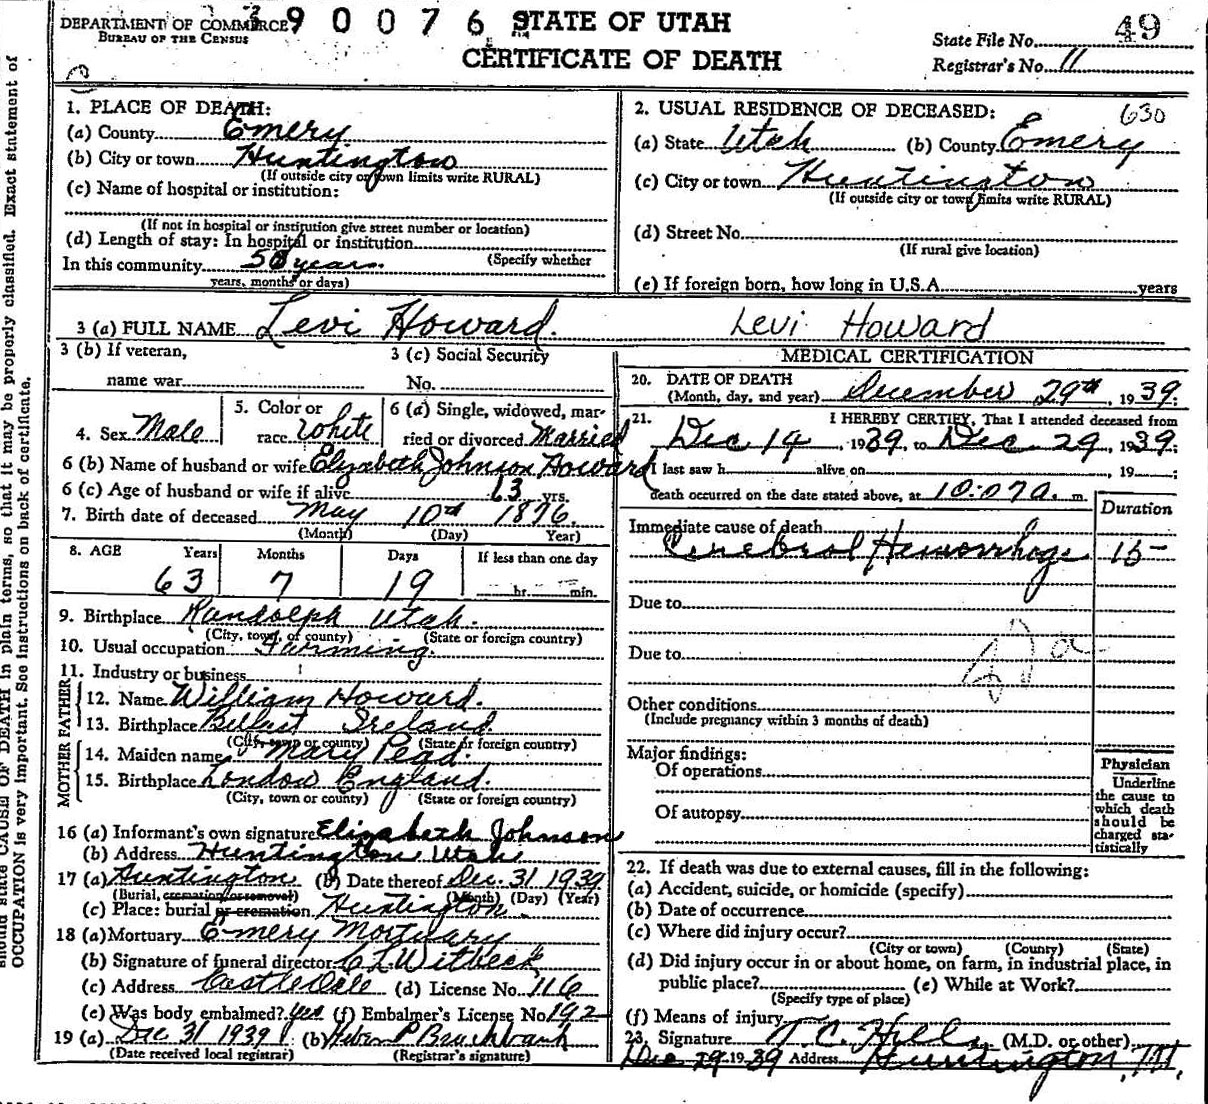 DEPARTMENT OF COMMERCE 390076 9 STATE OF UTAH
BUREAU OF THE CENSUS
CERTIFICATE OF DEATH
State File No. 49
Registrar's No. 11
1. PLACE OF DEATH:
(a) County Emery
(b) City or town Huntington
(If outside city or town limits write RURAL)
(c) Name of hospital or institution:
(If not in hospital or institution give street number or location)
(d) Length of stay: In hospital or institution
(Specify whether
In this community 50 years
years, months or days)
2. USUAL RESIDENCE OF DECEASED: 630
(a) State Utah (b) County Emery
(c) City or town Huntington
(If outside city or town limits write RURAL)
(d) Street No.
(If rural give location)
(e) If foreign born, how long in U.S.A. years
3 (a) FULL NAME Levi Howard. Levi Howard
3 (b) If veteran,
name war
3 (c) Social Security
No.
4. Sex Male
5. Color or
race White
6 (a) Single, widowed, mar-
ried or divorced Married
6 (b) Name of husband or wife Elizabeth Johnson Howard
6 (c) Age of husband or wife if alive 63 yrs.
7. Birth date of deceased May 10th 1876.
(Month) (Day) Year)
8. AGE Years Months Days If less than one day
63 7 19 hr. min.
9. Birthplace Randolph Utah.
(City, town, of county) (State or foreign country)
10. Usual occupation Farming.
11. Industry or business
FATHER
12. Name William Howard.
13. Birthplace Belfast Ireland.
(City, town or county) (State or foreign country)
MOTHER
14. Maiden name Mary Pead.
15. Birthplace London England.
(City, town or county) (State or foreign country)
16 (a) Informant's own signature Elizabeth Johnson
(b) Address Huntington Utah
17 (a) Huntington (b) Date thereof Dec. 31 1939
(Burial, cremation or removal) (Month) (Day) (Year)
(c) Place: burial or cremation Huntington.
18 (a) Mortuary Emery Mortuary
(b) Signature of funeral director C L Witbeck
(c) Address Castle Dale (d) License No. 116
(e) Was body embalmed? Yes (f) Embalmer's License No. 192
19 (a) Dec 31 1939 (b) Heber P Bruchbank
(Date received local registrar) (Registrar's signature)
MEDICAL CERTIFICATION
20. DATE OF DEATH
(Month, day, and year) December 29th, 1939.
21. I HEREBY CERTIFY, That I attended deceased from
Dec 14, 1939, to Dec 29, 1939;
I last saw h alive on , 19 ;
death occurred on the date stated above, at 10:07 a. m.
Duration
Immediate cause of death
Cerebral Hemorrhage 15-
Due to
Due to
Other conditions
(Include pregnancy within 3 months of death)
Major findings:
Of operations
Of autopsy
Physician
Underline
the cause to
which death
should be
charged sta-
tistically
22. If death was due to external causes, fill in the following:
(a) Accident, suicide, or homicide (specify)
(b) Date of occurrence
(c) Where did injury occur?
(City or town) (County) (State)
(d) Did injury occur in or about home, on farm, in industrial place, in
public place? (e) While at Work?
(Specify type of place)
(f) Means of injury
23. Signature T. C. Hill (M.D. or other)
Dec 29 1939 Address Huntington, Ut.
should state CAUSE OF DEATH in plain terms, so that it may be properly classified. Exact statement of
OCCUPATION is very important. See instructions on back of certificate.